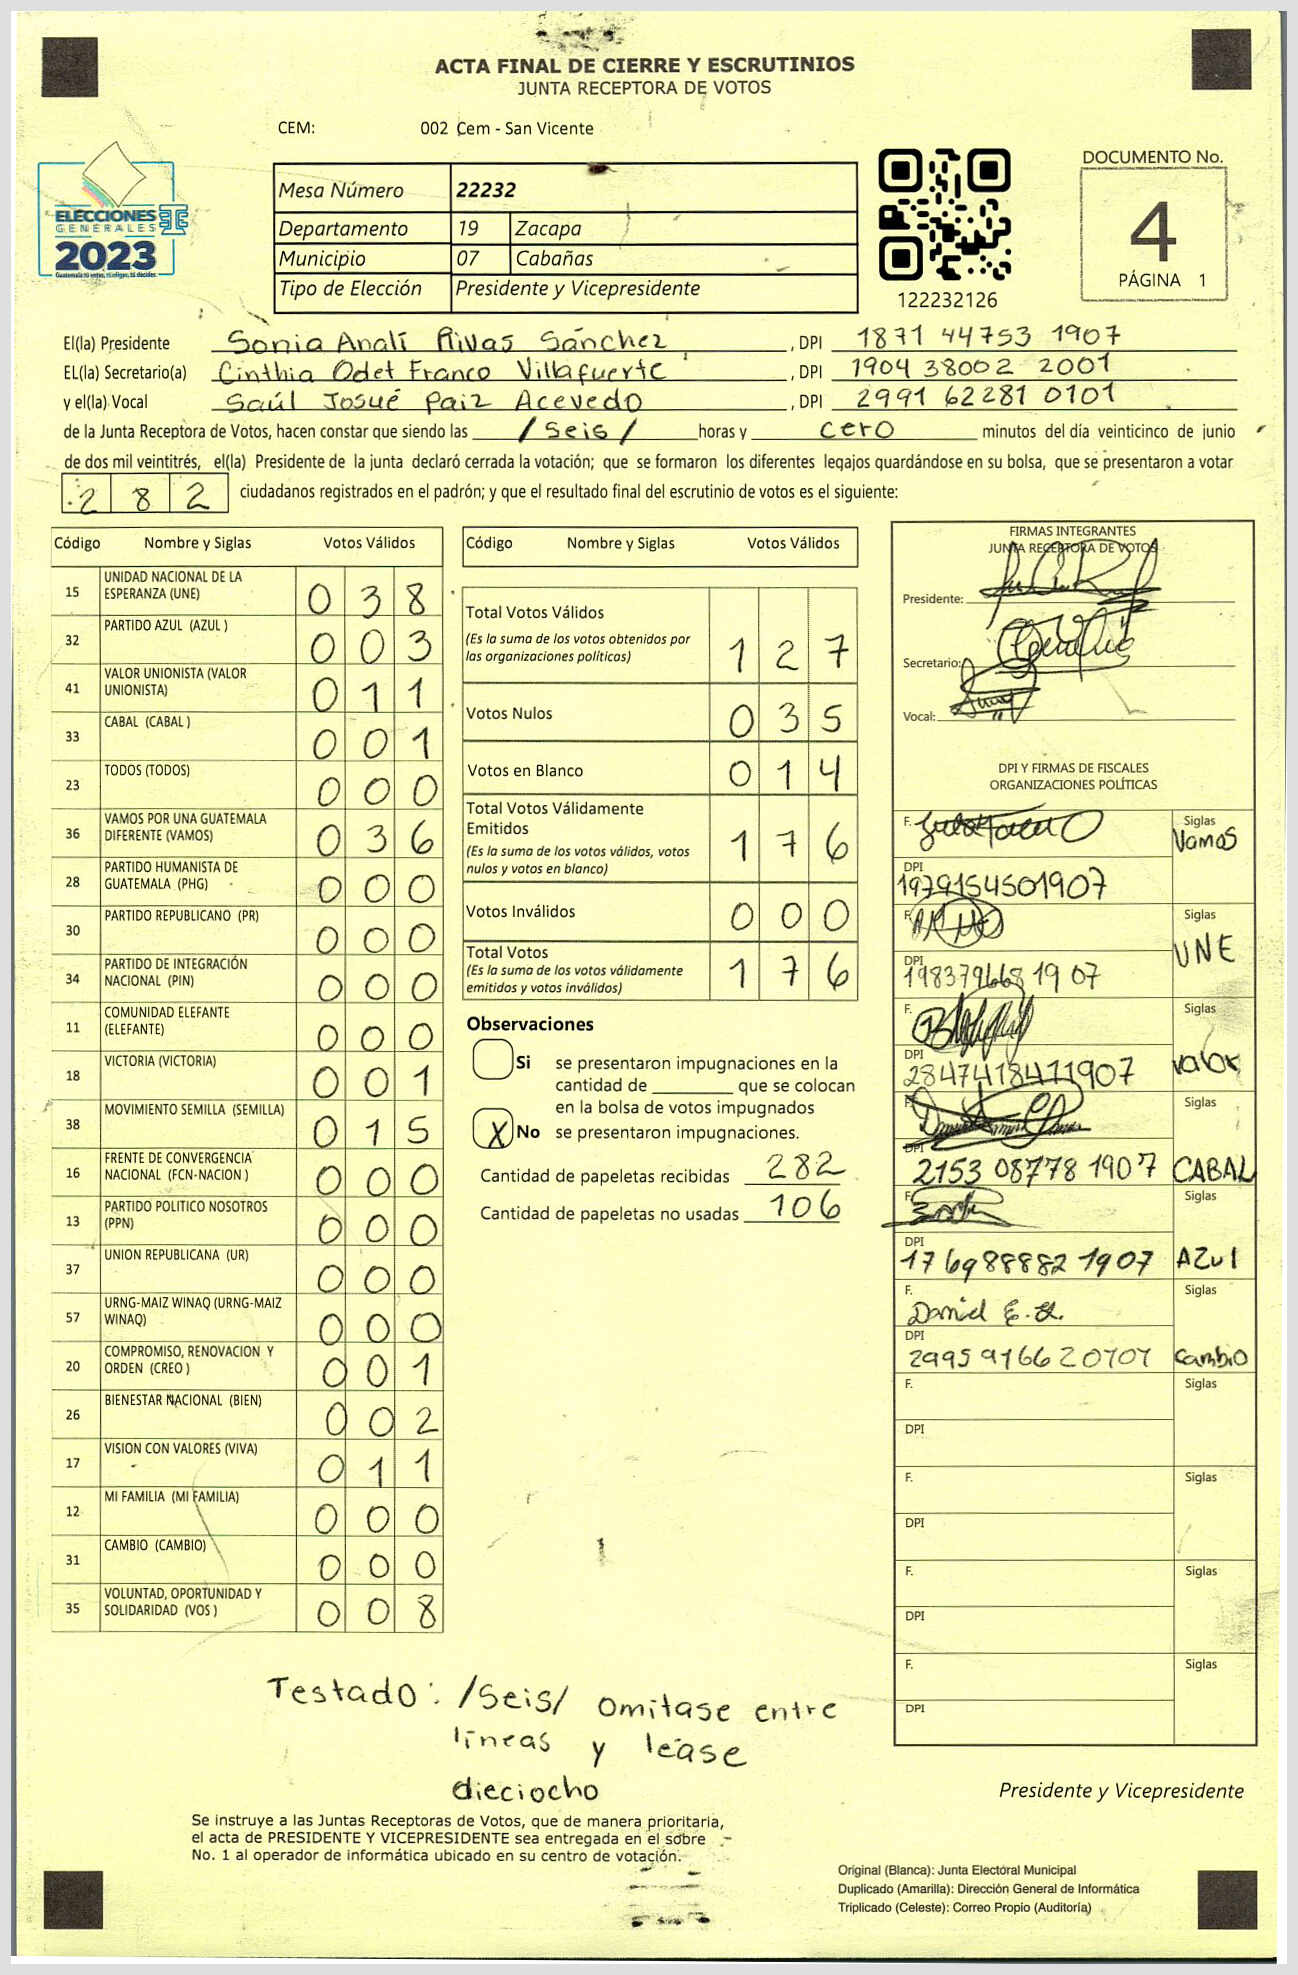 ACTA FINAL DE CIERRE Y ESCRUTINIOS
JUNTA RECEPTORA DE VOTOS
CEM: 002 Cem - San Vicente
ELECCIONES
GENERALES
2023
Mesa Número 22232
Departamento 19 Zacapa
Municipio 07 Cabañas
Tipo de Elección Presidente y Vicepresidente
122232126
DOCUMENTO No.
4
PÁGINA 1
El(la) Presidente Sonia Analí Rivas Sánchez, DPI 1871 44753 1907
EL(la) Secretario(a) Cinthia Odet Franco Villafuerte, DPI 1904 38002 2001
y el(la) Vocal Saúl Josué Paiz Acevedo, DPI 2991 62281 0101
de la Junta Receptora de Votos, hacen constar que siendo las /seis/ horas y cero minutos del día veinticinco de junio
de dos mil veintitrés, el(la) Presidente de la junta declaró cerrada la votación; que se formaron los diferentes legajos guardándose en su bolsa, que se presentaron a votar
282 ciudadanos registrados en el padrón; y que el resultado final del escrutinio de votos es el siguiente:
Código Nombre y Siglas Votos Válidos
15 UNIDAD NACIONAL DE LA ESPERANZA (UNE) 0 3 8
32 PARTIDO AZUL (AZUL ) 0 0 3
41 VALOR UNIONISTA (VALOR UNIONISTA) 0 1 1
33 CABAL (CABAL ) 0 0 1
23 TODOS (TODOS) 0 0 0
36 VAMOS POR UNA GUATEMALA DIFERENTE (VAMOS) 0 3 6
28 PARTIDO HUMANISTA DE GUATEMALA (PHG) 0 0 0
30 PARTIDO REPUBLICANO (PR) 0 0 0
34 PARTIDO DE INTEGRACIÓN NACIONAL (PIN) 0 0 0
11 COMUNIDAD ELEFANTE (ELEFANTE) 0 0 0
18 VICTORIA (VICTORIA) 0 0 1
38 MOVIMIENTO SEMILLA (SEMILLA) 0 1 5
16 FRENTE DE CONVERGENCIA NACIONAL (FCN-NACION ) 0 0 0
13 PARTIDO POLITICO NOSOTROS (PPN) 0 0 0
37 UNION REPUBLICANA (UR) 0 0 0
57 URNG-MAIZ WINAQ (URNG-MAIZ WINAQ) 0 0 0
20 COMPROMISO, RENOVACION Y ORDEN (CREO ) 0 0 1
26 BIENESTAR NACIONAL (BIEN) 0 0 2
17 VISION CON VALORES (VIVA) 0 1 1
12 MI FAMILIA (MI FAMILIA) 0 0 0
31 CAMBIO (CAMBIO) 0 0 0
35 VOLUNTAD, OPORTUNIDAD Y SOLIDARIDAD (VOS ) 0 0 8
Código Nombre y Siglas Votos Válidos
Total Votos Válidos
(Es la suma de los votos obtenidos por
las organizaciones políticas) 1 2 7
Votos Nulos 0 3 5
Votos en Blanco 0 1 4
Total Votos Válidamente
Emitidos
(Es la suma de los votos válidos, votos
nulos y votos en blanco) 1 7 6
Votos Inválidos 0 0 0
Total Votos
(Es la suma de los votos válidamente
emitidos y votos inválidos) 1 7 6
Observaciones
Si se presentaron impugnaciones en la
cantidad de ________ que se colocan
en la bolsa de votos impugnados
X No se presentaron impugnaciones.
Cantidad de papeletas recibidas 282
Cantidad de papeletas no usadas 106
FIRMAS INTEGRANTES
JUNTA RECEPTORA DE VOTOS
Presidente:
Secretario:
Vocal:
DPI Y FIRMAS DE FISCALES
ORGANIZACIONES POLÍTICAS
F. Siglas Vamos
DPI 1979154501907
F. Siglas UNE
DPI 198379668 19 07
F. Siglas valor
DPI 2847418411907
F. Siglas CABAL
DPI 2153 08778 1907
F. Siglas AZUl
DPI 176988882 1907
F. Daniel E. Siglas cambio
DPI 2995916620101
F. Siglas
DPI
F. Siglas
DPI
F. Siglas
DPI
F. Siglas
DPI
Testado: /seis/ omitase entre
líneas y léase
dieciocho
Presidente y Vicepresidente
Se instruye a las Juntas Receptoras de Votos, que de manera prioritaria,
el acta de PRESIDENTE Y VICEPRESIDENTE sea entregada en el sobre
No. 1 al operador de informática ubicado en su centro de votación.
Original (Blanca): Junta Electoral Municipal
Duplicado (Amarilla): Dirección General de Informática
Triplicado (Celeste): Correo Propio (Auditoría)